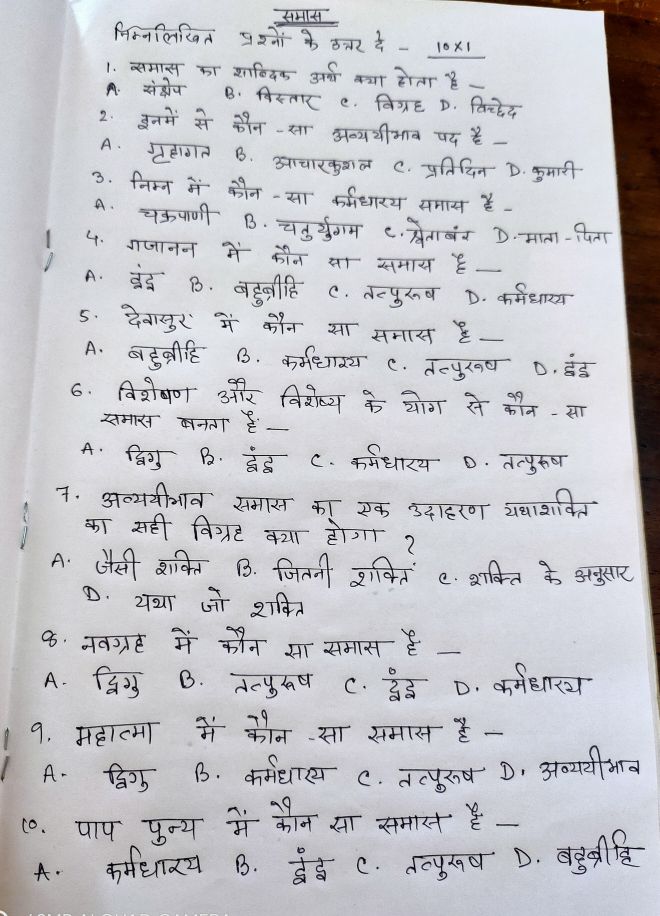 समास
निम्नलिखित प्रश्नों के उत्तर दे - 10×1
1. समास का शाब्दिक अर्थ क्या होता है -
A. संक्षेप B. विस्तार C. विग्रह D. विच्छेद
2. इनमें से कौन - सा अव्ययीभाव पद है -
A. गृहागत B. आचारकुशल C. प्रतिदिन D. कुमारी
3. निम्न में कौन - सा कर्मधारय समास है -
A. चक्रपाणी B. चतुर्युगम C. श्वेताबंर D. माता - पिता
4. गजानन में कौन सा समास है -
A. द्वंद्व B. बहुब्रीहि C. तत्पुरूष D. कर्मधारय
5. देवासुर में कौन सा समास है -
A. बहुब्रीहि B. कर्मधारय C. तत्पुरूष D. द्वंद्व
6. विशेषण और विशेष्य के योग से कौन - सा
समास बनता है -
A. द्विगु B. द्वंद्व C. कर्मधारय D. तत्पुरूष
7. अव्ययीभाव समास का एक उदाहरण यथाशक्ति
का सही विग्रह क्या होगा ?
A. जैसी शक्ति B. जितनी शक्ति C. शक्ति के अनुसार
D. यथा जो शक्ति
8. नवग्रह में कौन सा समास है -
A. द्विगु B. तत्पुरूष C. द्वंद्व D. कर्मधारय
9. महात्मा में कौन - सा समास है -
A. द्विगु B. कर्मधारय C. तत्पुरूष D. अव्ययीभाव
10. पाप पुन्य में कौन सा समास है -
A. कर्मधारय B. द्वंद्व C. तत्पुरूष D. बहुब्रीहि